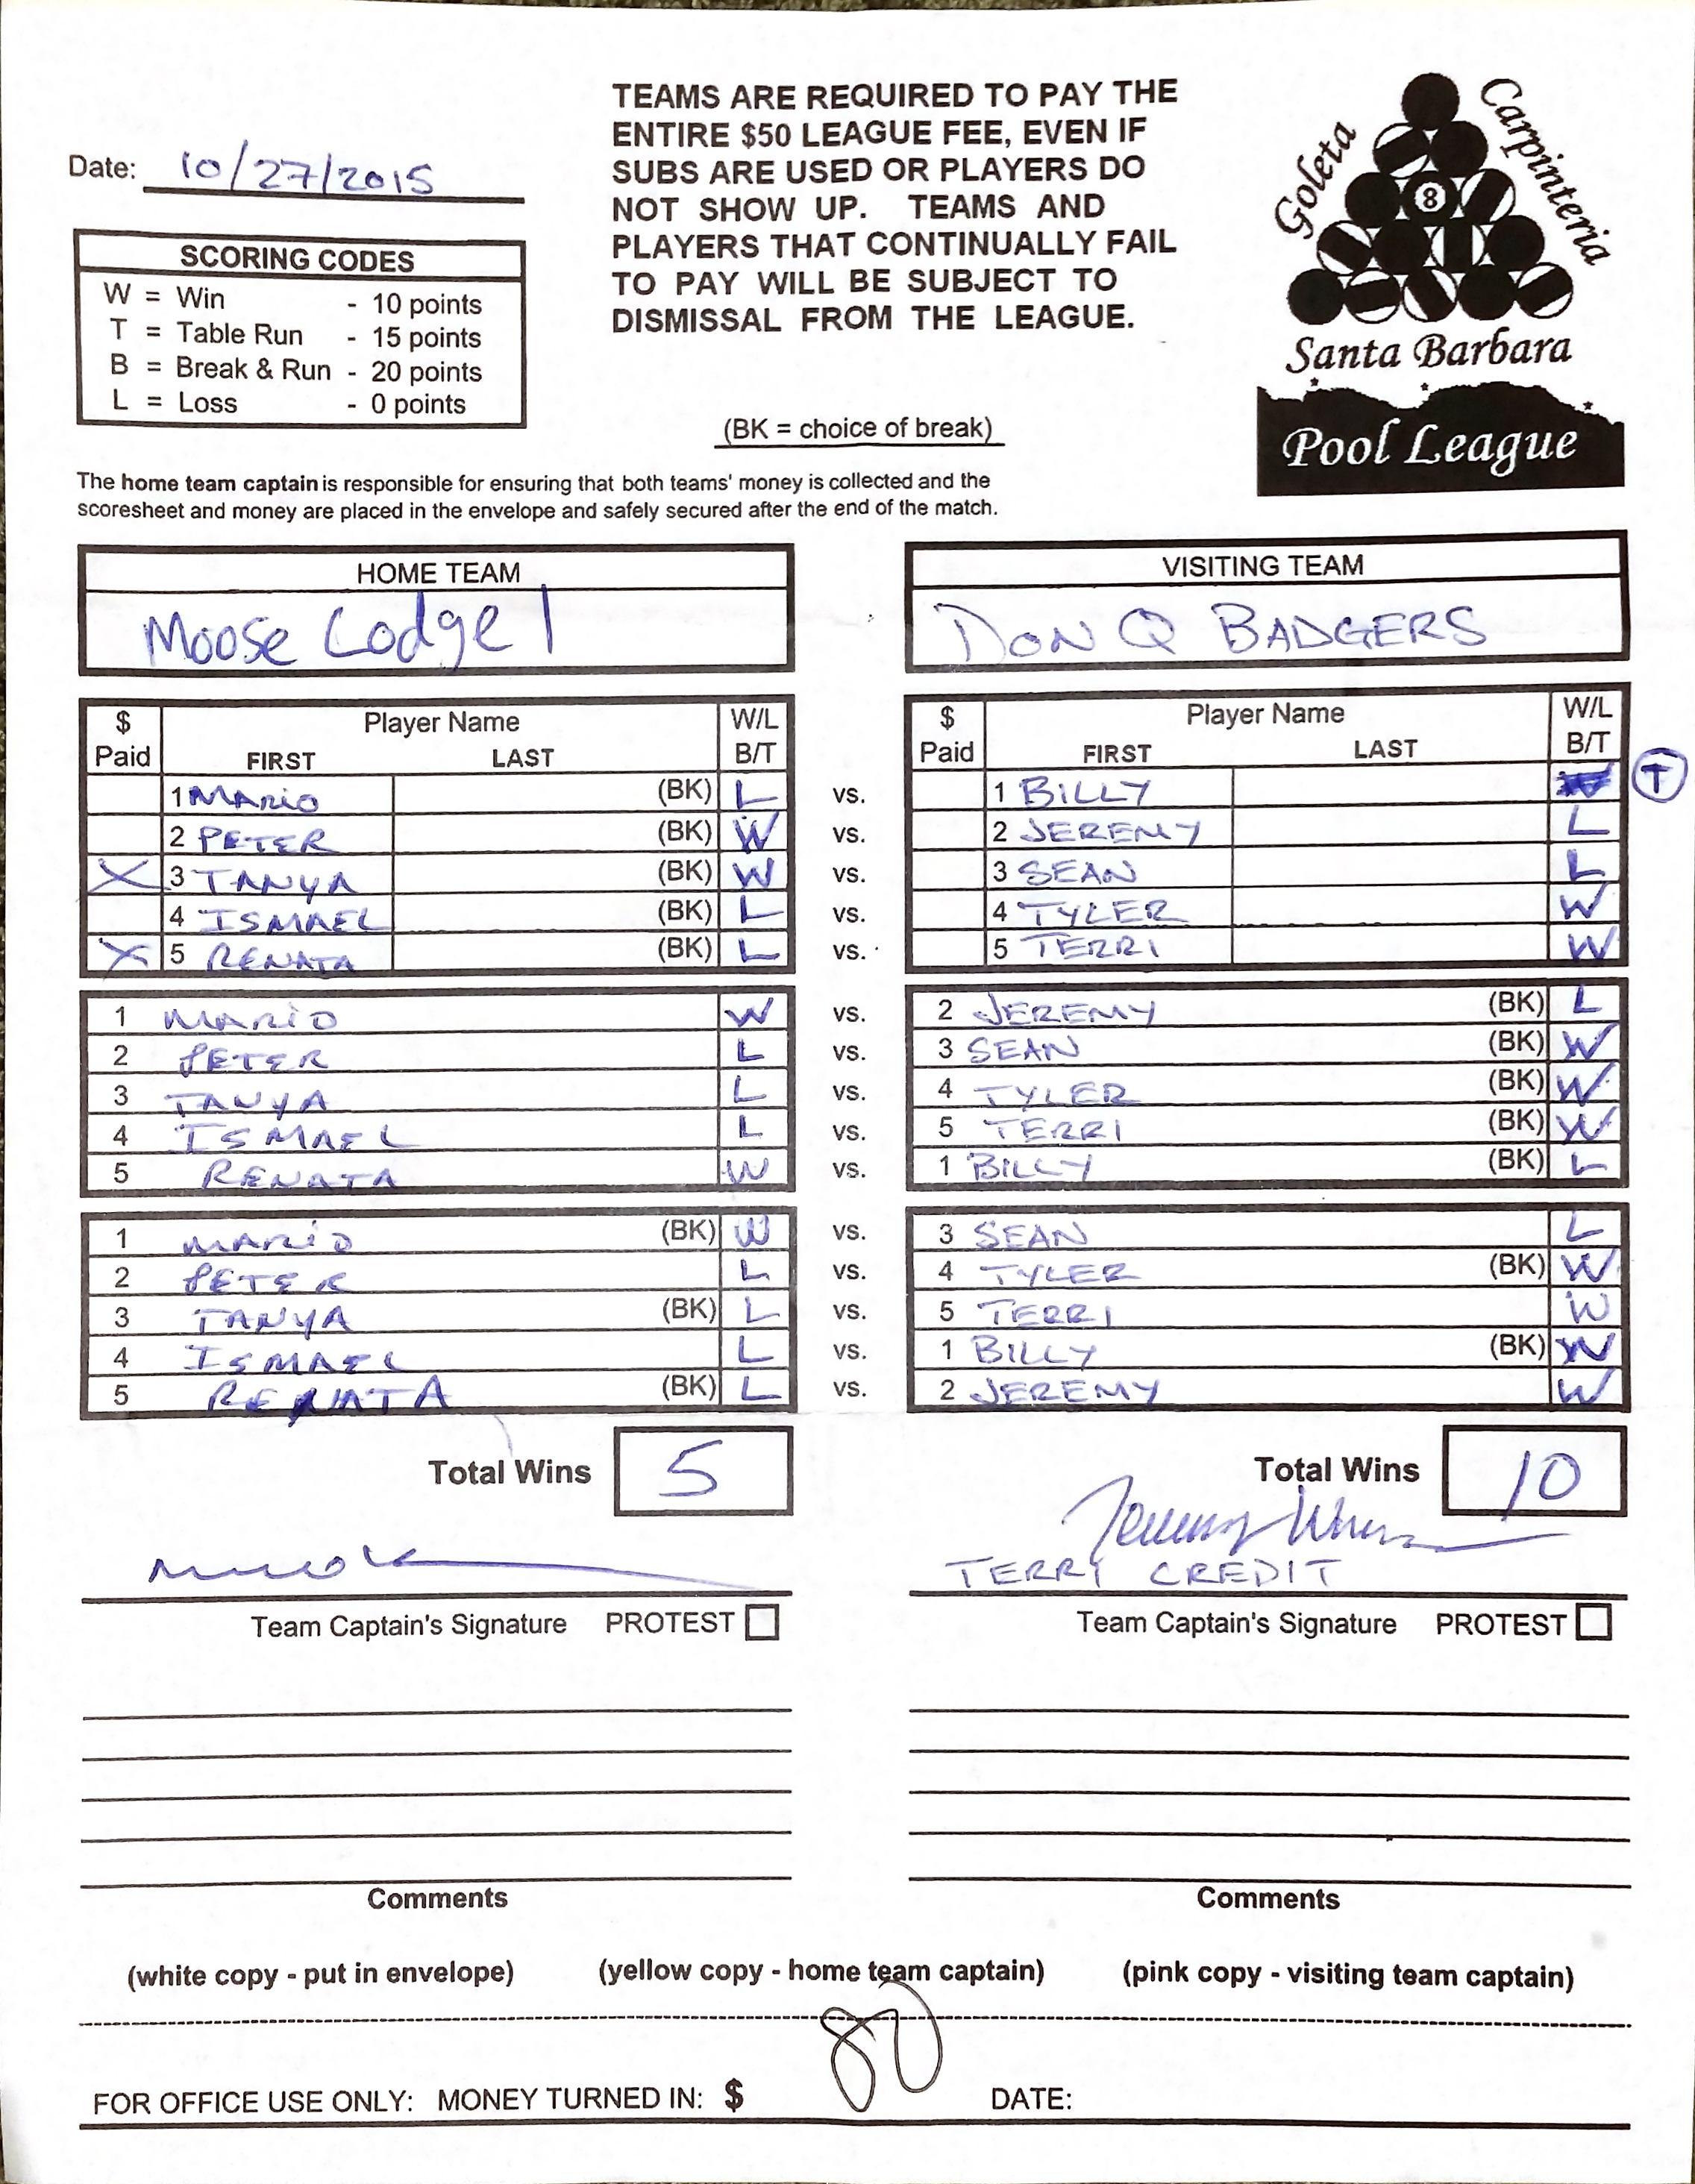 TEAMS ARE REQUIRED TO PAY THE
ENTIRE $50 LEAGUE FEE, EVEN IF
SUBS ARE USED OR PLAYERS DO
NOT SHOW UP. TEAMS AND
PLAYERS THAT CONTINUALLY FAIL
TO PAY WILL BE SUBJECT TO
DISMISSAL FROM THE LEAGUE.
Goleta
Carpinteria
8
Santa Barbara
Pool League
Date: 10/27/2015
SCORING CODES
W = Win - 10 points
T = Table Run - 15 points
B = Break & Run - 20 points
L = Loss - 0 points
(BK = choice of break)
The home team captain is responsible for ensuring that both teams' money is collected and the
scoresheet and money are placed in the envelope and safely secured after the end of the match.
HOME TEAM VISITING TEAM
Moose Lodge 1 DON Q BADGERS
$ Player Name W/L $ Player Name W/L
Paid FIRST LAST B/T Paid FIRST LAST B/T
1 MARIO (BK) L vs. 1 BILLY T
2 PETER (BK) W vs. 2 JEREMY L
X 3 TANYA (BK) W vs. 3 SEAN L
4 ISMAEL (BK) L vs. 4 TYLER W
X 5 RENATA (BK) L vs. 5 TERRI W
1 MARIO W vs. 2 JEREMY (BK) L
2 PETER L vs. 3 SEAN (BK) W
3 TANYA L vs. 4 TYLER (BK) W
4 ISMAEL L vs. 5 TERRI (BK) W
5 RENATA W vs. 1 BILLY (BK) L
1 MARIO (BK) W vs. 3 SEAN L
2 PETER L vs. 4 TYLER (BK) W
3 TANYA (BK) L vs. 5 TERRI W
4 ISMAEL L vs. 1 BILLY (BK) W
5 RENATA (BK) L vs. 2 JEREMY W
Total Wins 5 Total Wins 10
TERRY CREDIT
Team Captain's Signature PROTEST Team Captain's Signature PROTEST
Comments Comments
(white copy - put in envelope) (yellow copy - home team captain) (pink copy - visiting team captain)
FOR OFFICE USE ONLY: MONEY TURNED IN: $ 80 DATE: